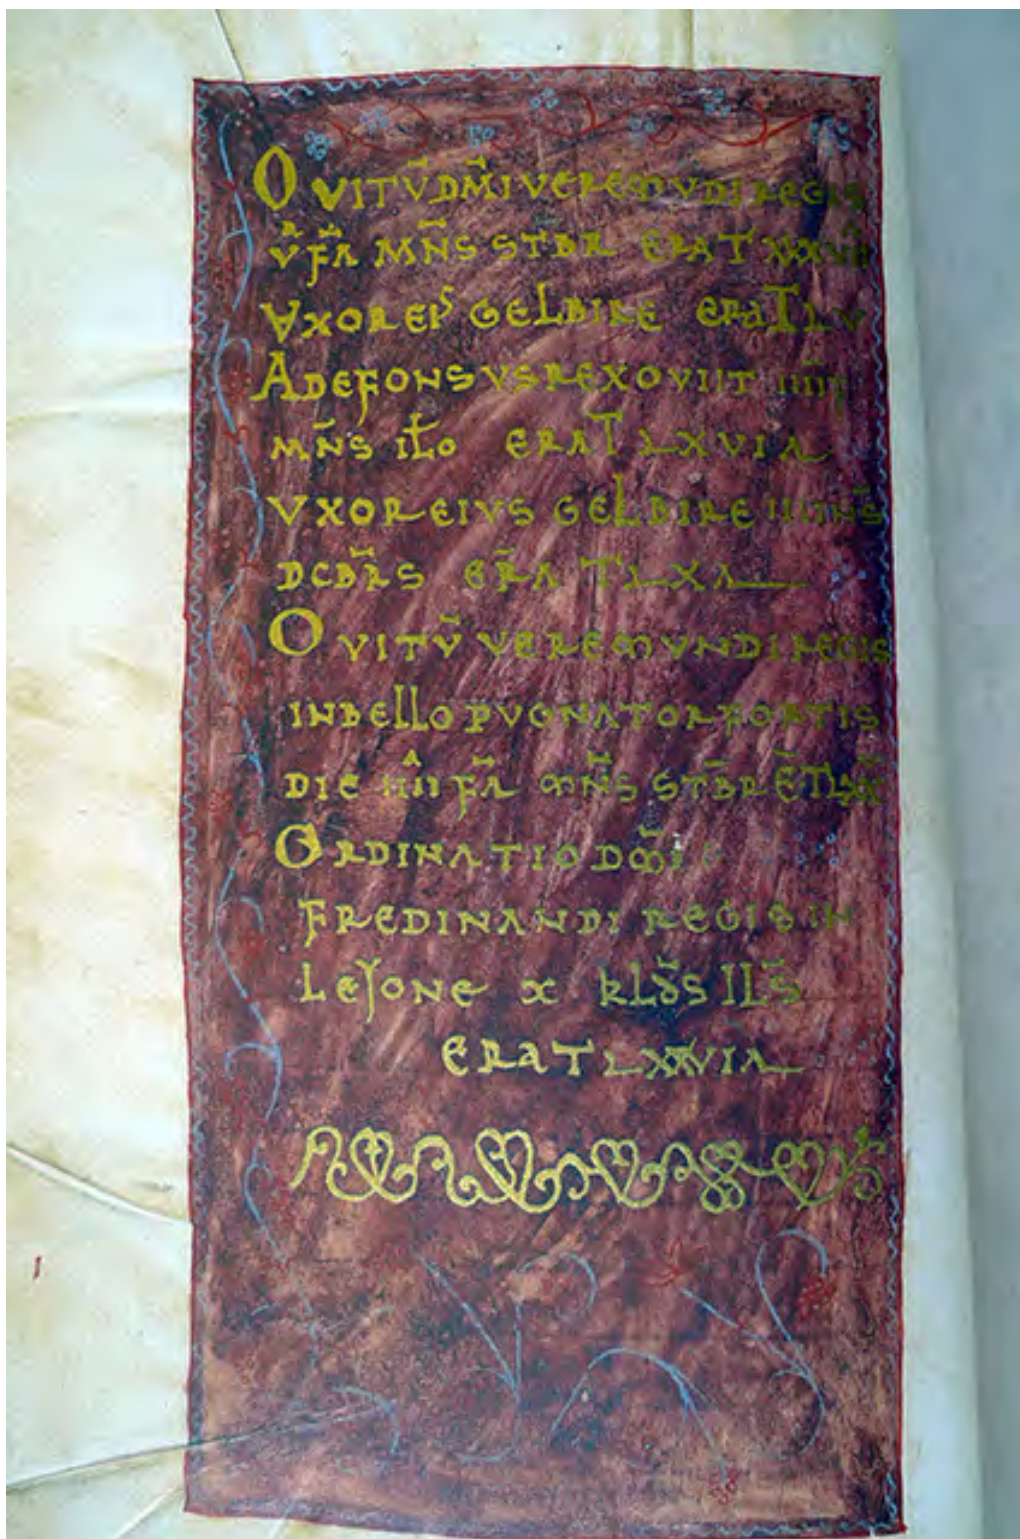 OVITV̄ DM̄I VEREMVDI REGIS
V FA MN̄S STBR ERA T XXXVII
VXOR EIꝰ GELBIRE ERA T LV
ADEFONSVS REX OVIIT IIII
MN̄S ILO ERA T LXVIA
VXOR EIVS GELBIRE IIII MN̄S
DCBRS ERA T LXA
OVITV̄ VEREMVNDI REGIS
IN BELLO PVGNATOR FORTIS
DIE IIII FA MN̄S STBR
ORDINATIO DM̄I
FREDINANDI REGIS IN
LEJONE X KLDS ILS
ERA T LXXVIA